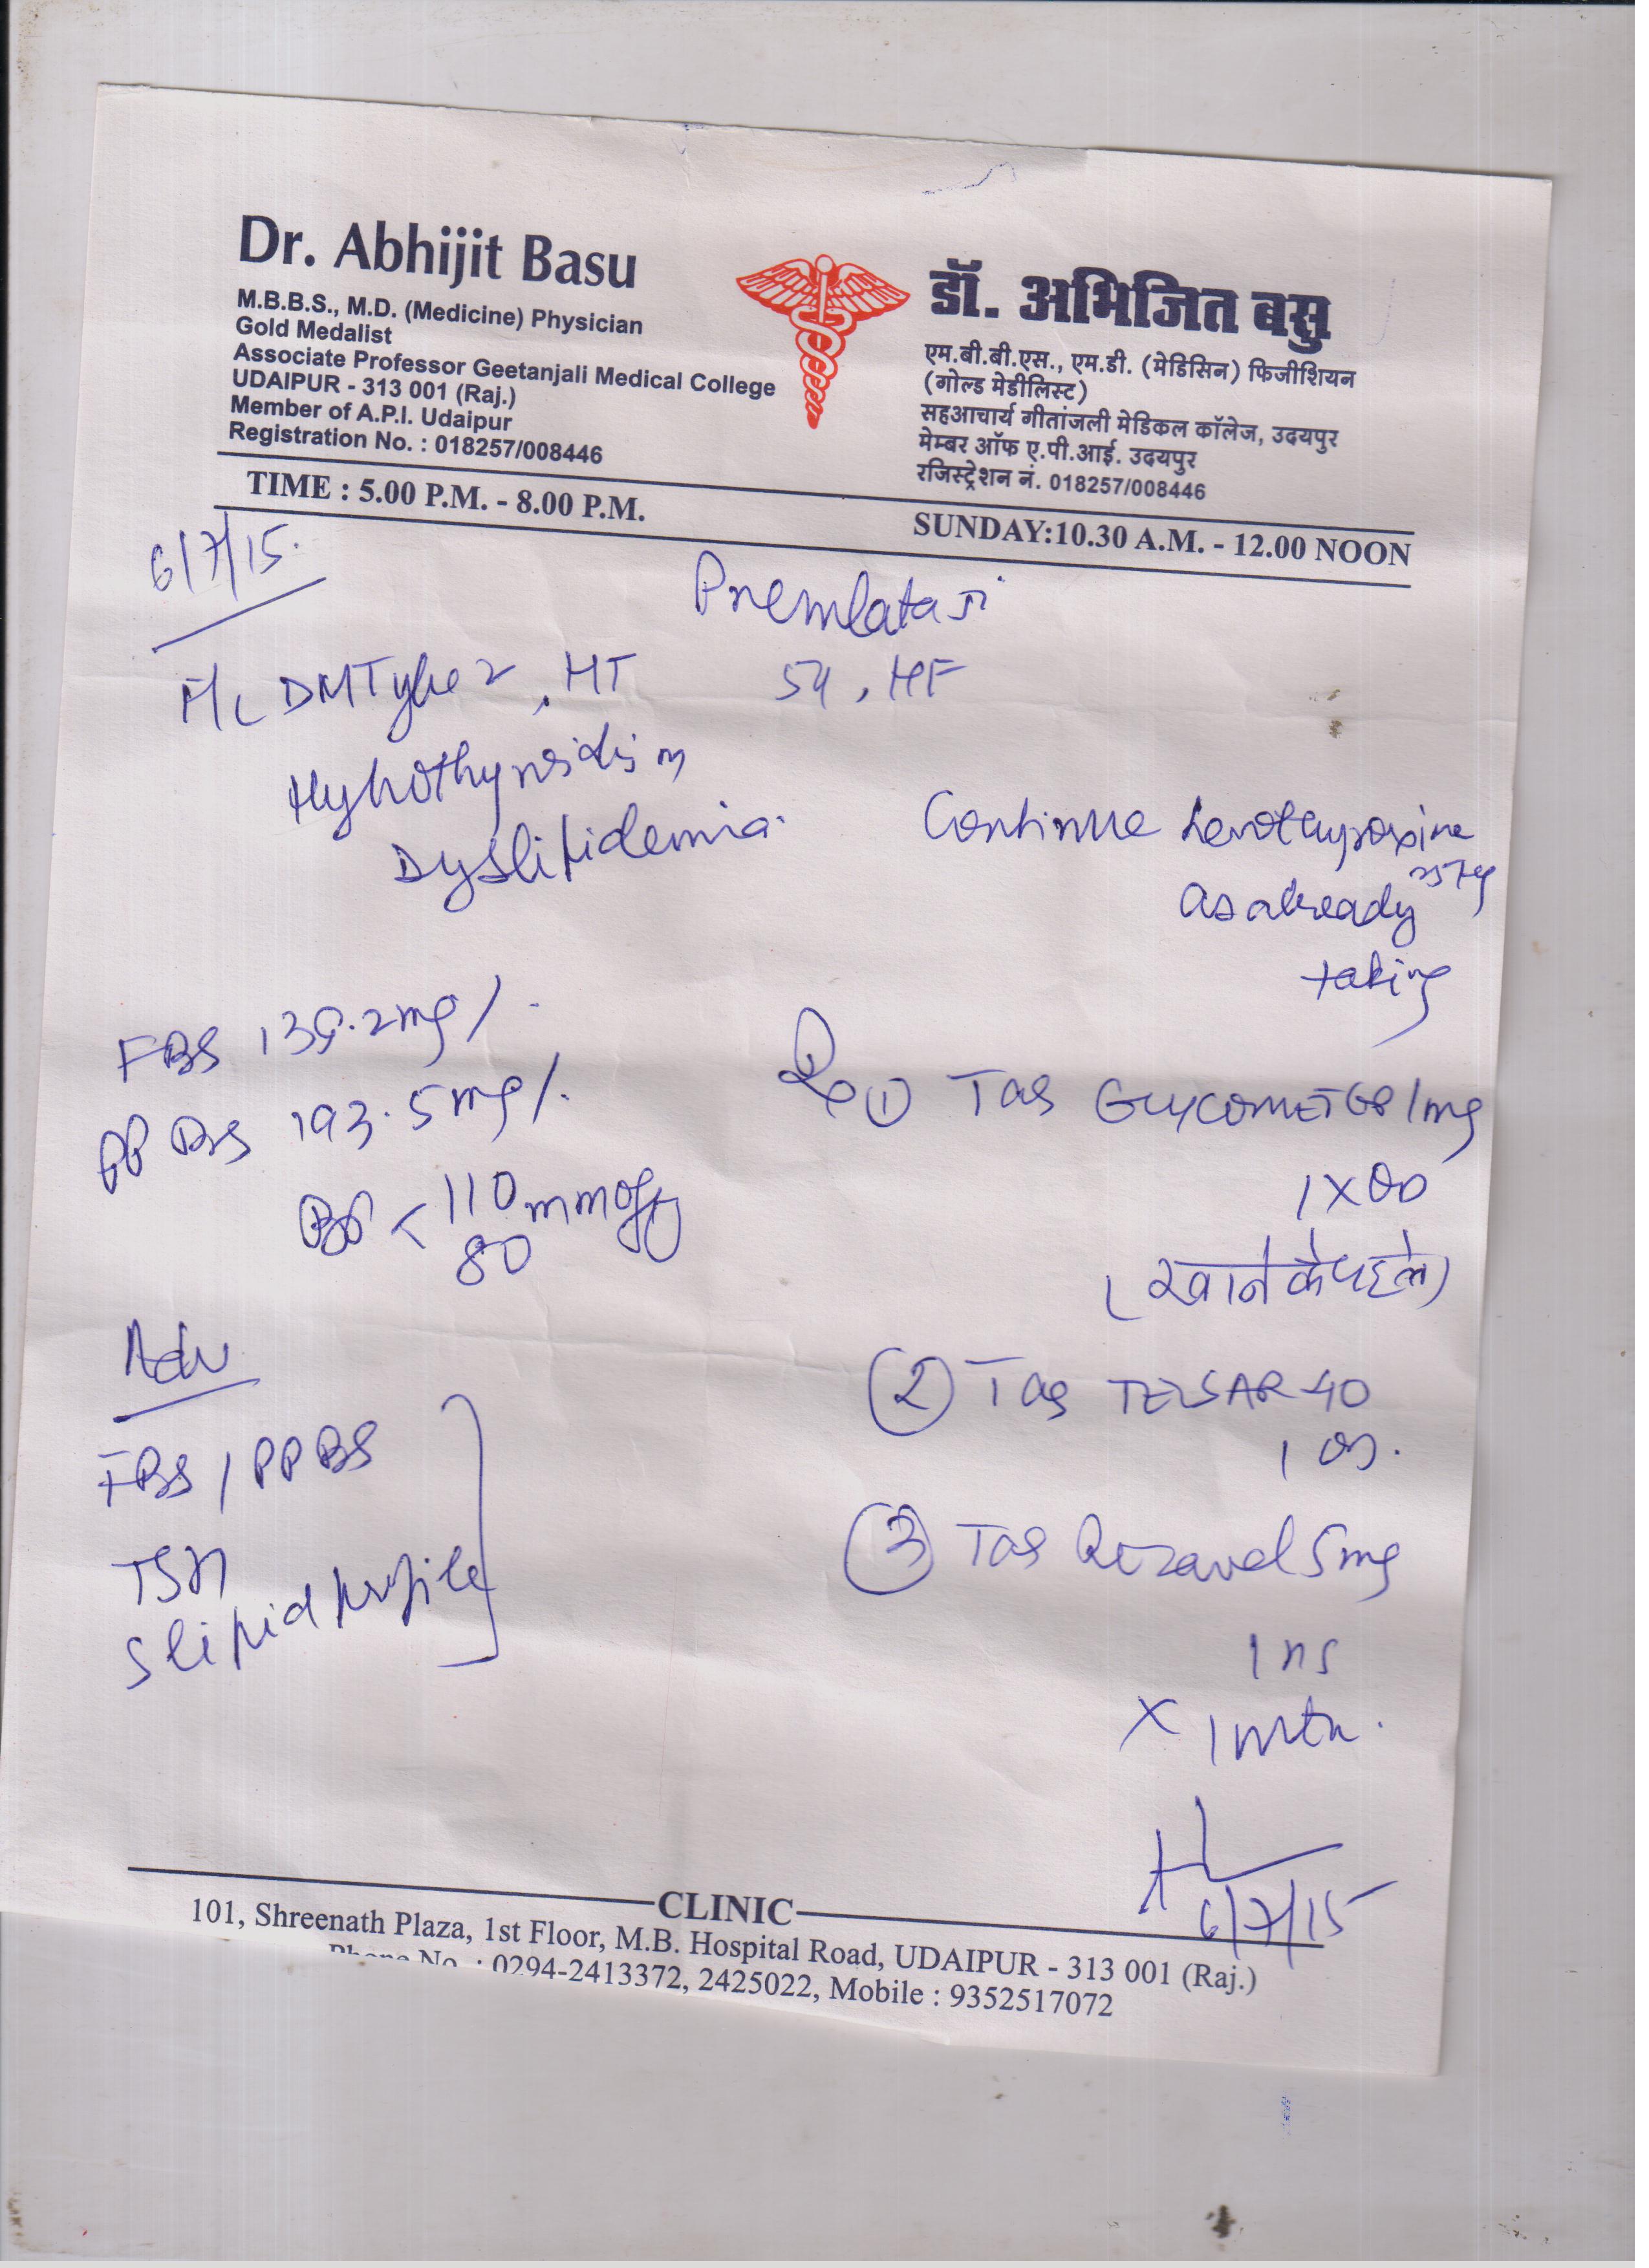 Dr. Abhijit Basu
M.B.B.S., M.D. (Medicine) Physician
Gold Medalist
Associate Professor Geetanjali Medical College
UDAIPUR - 313 001 (Raj.)
Member of A.P.I. Udaipur
Registration No. : 018257/008446
डॉ. अभिजित बसु
एम.बी.बी.एस., एम.डी. (मेडिसिन) फिजीशियन
(गोल्ड मेडीलिस्ट)
सहआचार्य गीतांजली मेडिकल कॉलेज, उदयपुर
मेम्बर ऑफ ए.पी.आई. उदयपुर
रजिस्ट्रेशन नं. 018257/008446
TIME : 5.00 P.M. - 8.00 P.M.
SUNDAY:10.30 A.M. - 12.00 NOON
6/7/15.
Premlata Ji
54, HF
DM Type 2, HT
Hypothyroidism
Dyslipidemia.
Continue Levothyroxine
as already
taking
FBS 139.2mg/.
PPBS 193.5mg/.
BP < 110 mmofHg
80
Adv
FBS / PPBS
TSH
S lipid profile
Rx ① Tab GLYCOMET GP 1mg
1 X OD
(खाने के पहले)
② Tab TELSAR 40
1 OD.
③ Tab Rozavel 5mg
1 HS
X 1 mth.
6/7/15
CLINIC
101, Shreenath Plaza, 1st Floor, M.B. Hospital Road, UDAIPUR - 313 001 (Raj.)
Phone No. : 0294-2413372, 2425022, Mobile : 9352517072